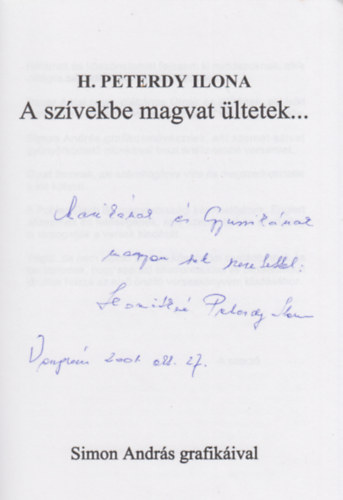 H. PETERDY ILONA
A szívekbe magvat ültetek...
és
nagyon sok szeretettel:
Peterdy Ilona
Veszprém 2001. okt. 27.
Simon András grafikáival